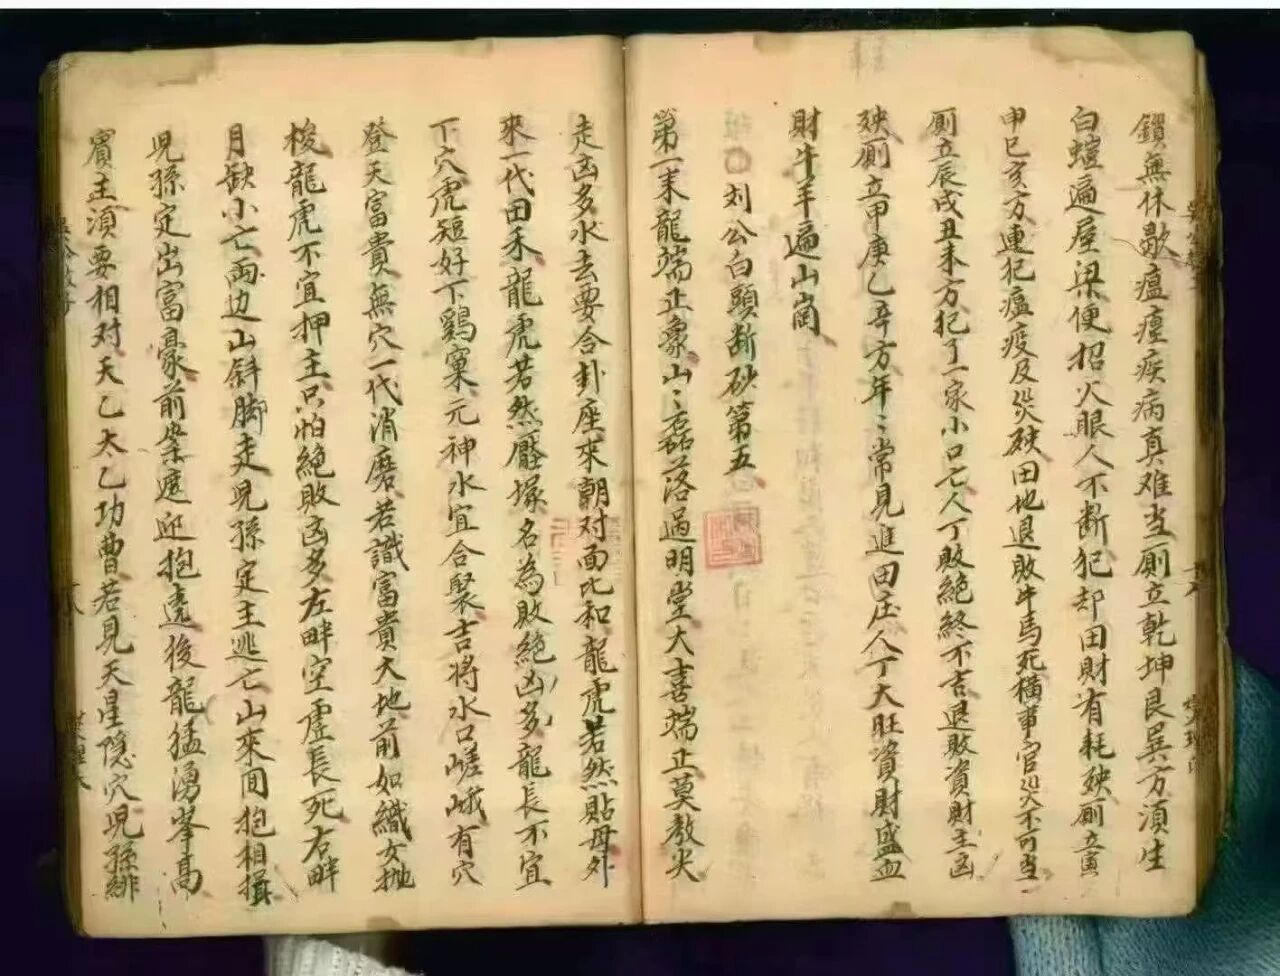 鎖無休歇瘟瘟疾病真难当厠立乾坤艮巽方湏生
白蟻遍屋梁便招火眼人不断犯却田財有耗殃厠立寅
申巳亥方連犯瘟疫及災殃田地退敗牛馬死橫事官災不可当
厠立辰戌丑未方犯了一家小口亡人丁敗絕終不吉退敗資財主凶
殃厠立甲庚乙辛方年〻常見進田庄人丁大旺資財盛血
財牛羊遍山崗
刘公白頭断砂第五
第一来龍端正象山〻磊落過明堂大喜端正莫教尖
走凶多水去要合卦座來朝对面比和龍虎若然貼母外
來一代田禾龍虎若然壓塚名為敗絕凶多龍長不宜
下穴虎短好下鷄窠元神水宜合聚吉将水口嵯峨有穴
登天富貴無穴一代消磨若識富貴大地前如織女抛
梭龍虎不宜押主只怕絕敗凶多左畔空虛長死右畔
月缺小亡両边山斜脚走児孫定主逃亡山來囬抱相揖
児孫定出富豪前案遮迎抱遶後龍猛湧峯高
賔主湏要相对天乙太乙功曹若見天星隐穴児孫緋